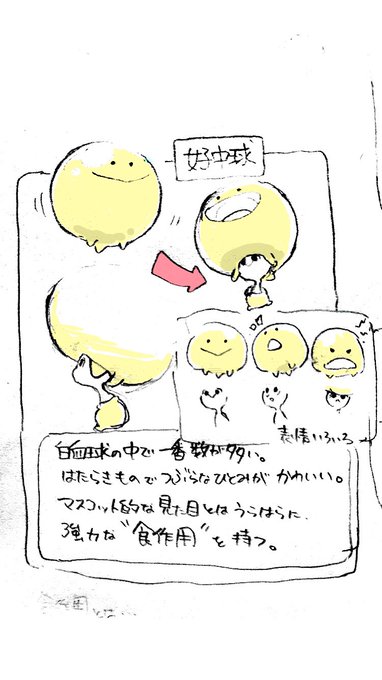 好中球
表情いろいろ
白血球の中で一番数が多い。
はたらきものでつぶらなひとみがかわいい。
マスコット的な見た目とはうらはらに、
強力な"食作用"を持つ。